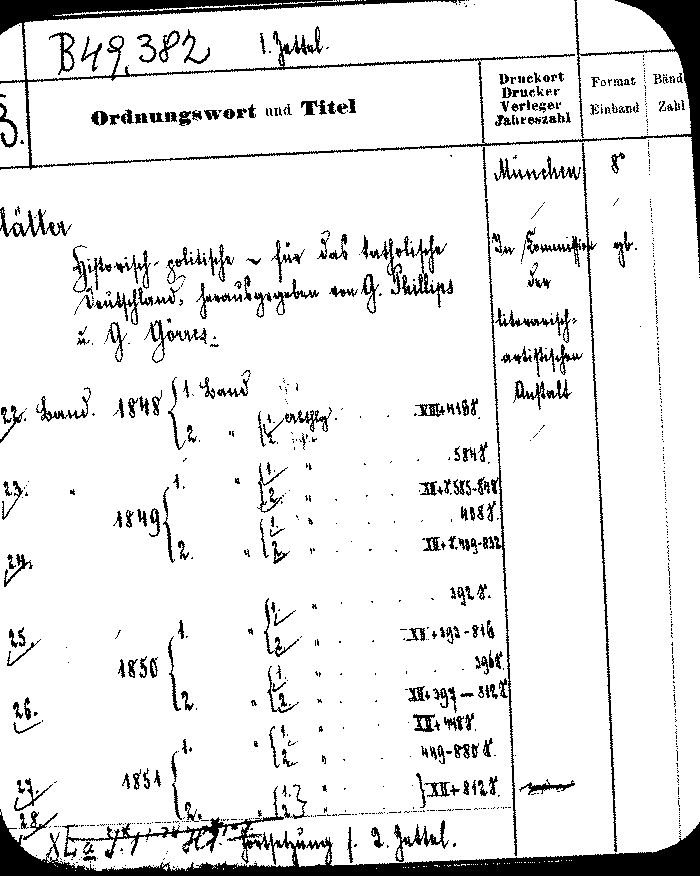 B49,382 1. Zettel.
Ordnungswort und Titel
Druckort
Drucker
Verleger
Jahreszahl
Format
Einband
Bänd
Zahl
3.
München 8°
lätter
Historisch-politische ~ für das katholische
Deutschland, herausgegeben von G. Phillips
u. G. Görres.
In Kommission
der
literarisch-
artistischen
Anstalt
gb.
22. Band. 1848 { 1. Band
2. " { 1. 2. XII+416S.
23. " 1849 { 1. " { 1. " 584S.
2. " XII+S.585-848
2. " { 1. " 408S.
24. 2. " XII+S.409-832
25. 1850 { 1. " { 1. " 392S.
2. " XII+393-816
2. " { 1. " 396S.
26. 2. " XII+397-812S.
1851 { 1. " { 1. " XII+448S.
2. " 449-880S.
27. 2. " { 1. 2. } " } XII+812S.
28.
Fortsetzung s. 2. Zettel.